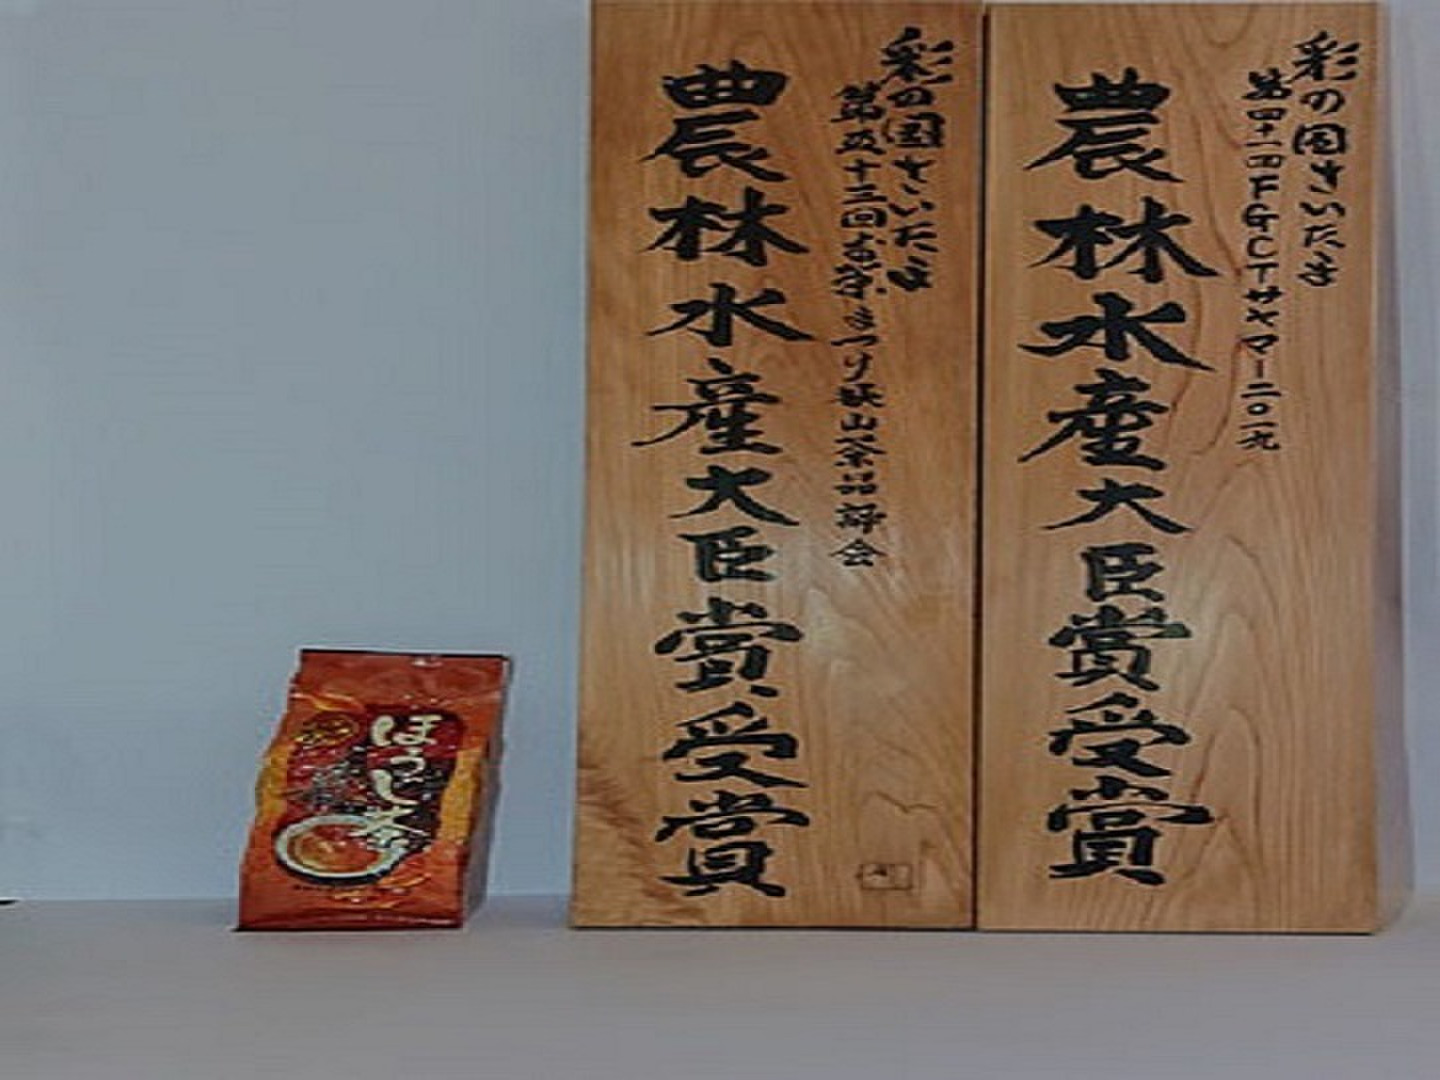 彩の国さいたま
第四十一回FGCTサヤマー二〇一九
農林水産大臣賞受賞
彩の国さいたま
第五十三回お茶まつり狭山茶品評会
農林水産大臣賞受賞
ほうじ茶